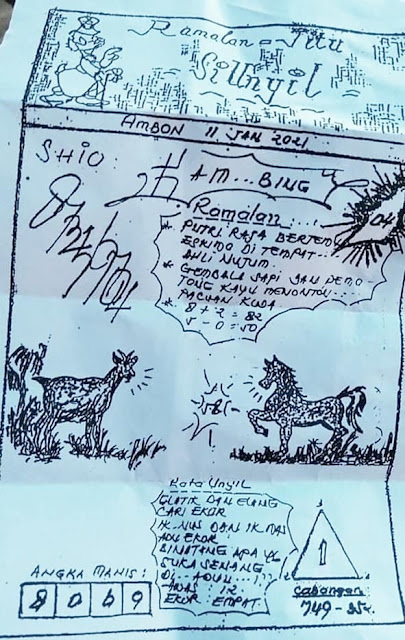 Ramalan = Jitu
Si Unyil
AMBON 11 JAN 2021
SHIO:
AM... BING
04
Ramalan....:
* PUTRI RAJA BERTEMU
ESKIMO DI TEMPAT...
AHLI NUJUM
* GEMBALA SAPI DAN
TONG KAYU MENONTON....
* PACUAN KUDA
8 + 2 = 82
5 - 0 = 50
!
Kata Unyil
GLATIK DAN ELANG
CARI EKOR
IK NUS DAN IK MAS
ADU EKOR
BINATANG APA YG
SUKA SENANG
DI.. ADUU...!!?
EKOR : EMPAT
1
ANGKA MANIS :
8 0 6 9
Cabangan
749 -